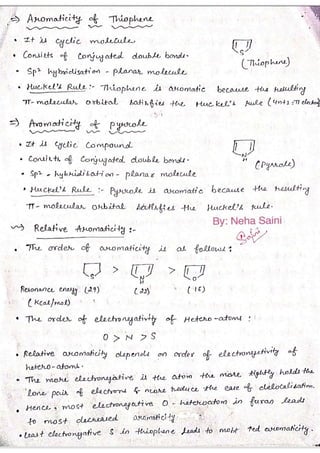 ⇒ Aromaticity of Thiophene
• It is cyclic molecule
• Consists of Conjugated double bonds.
S
(Thiophene)
• Sp² hybridisation - planar molecule
• Huckel's Rule :- Thiophene is aromatic because the resulting
π-molecular orbital satisfies the Huckel's Rule (4n+2 π electron)
⇒ Aromaticity of pyrrole
• It is cyclic Compound
• Consists of Conjugated double bonds.
N
H
(Pyrrole)
• Sp² - hybridisation - planar molecule
• Huckel's Rule :- Pyrrole is aromatic because the resulting
π-molecular orbital satisfies the Huckel's rule.
By: Neha Saini
Saini
Relative Aromaticity :-
• The order of aromaticity is as follows :
S > N > O
H
Resonance energy (29) (22) (16)
(Kcal/mol)
• The order of electronegativity of Hetero-atoms :
O > N > S
• Relative aromaticity depends on order of electronegativity of
hetero-atoms.
• The more electronegative is the atom the more tightly holds the
lone pair of electrons & more reduce the ease of delocalisation.
• Hence, most electronegative O - heteroatom in furan leads
to most decreased aromaticity.
• least electronegative S in thiophene leads to most ted aromaticity.